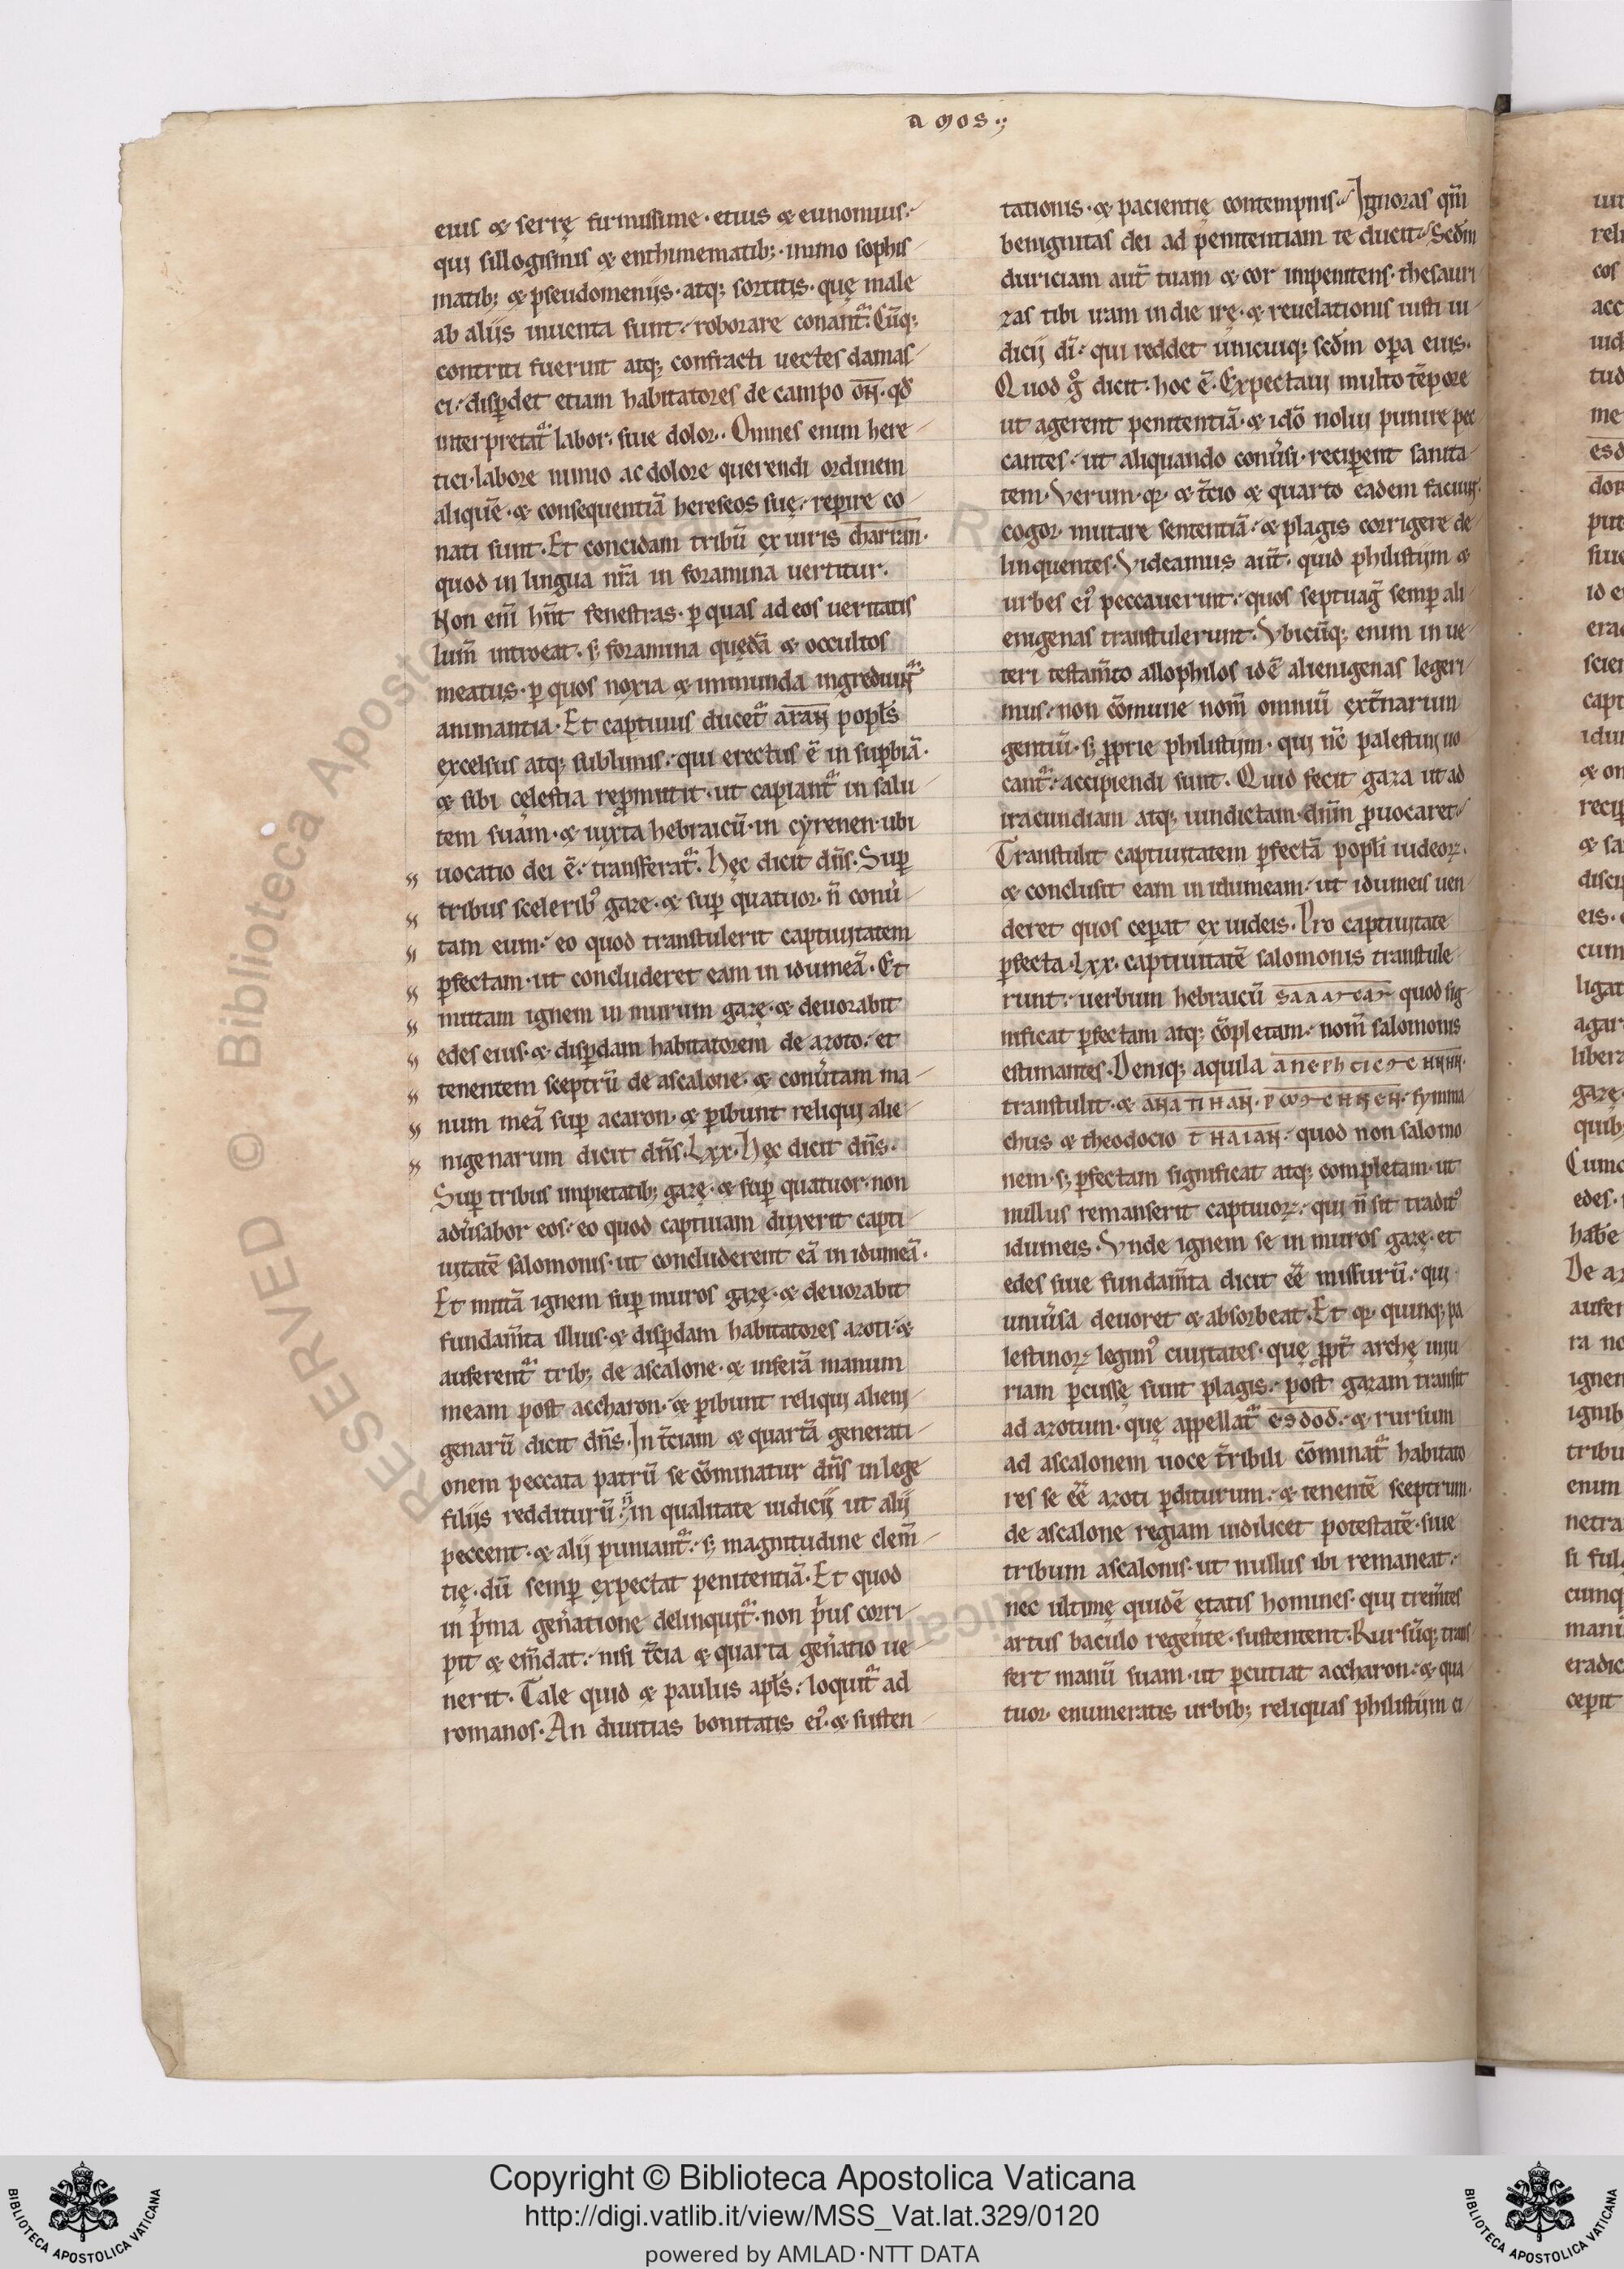 amos·;
eius & serrę firmissime· etius & eunomius·
qui sillogismis & enthimematib;· immo sophis
matib; & pseudomeniis· atq; sortitis· quę male
ab aliis inuenta sunt· roborare conant᷑. Cūq;
contriti fuerint atq; confracti uectes damas
ci· disꝑdet etiam habitatores de campo on̄· qđ
interpretat᷑ labor· siue dolor. Omnes enim here
tici· labore nimio ac dolore querendi ordinem
aliquē· & consequentiā hereseos suę· reperire co
nati sunt. Et concidam tribū ex uiris charran·
quod in lingua nr̄a in foramina uertitur.
Non em̄ hn̄t fenestras· ꝑ quas ad eos ueritatis
lum̄ introeat· s; foramina quędā & occultos
meatus· ꝑ quos noxia & immunda ingrediunt᷑
animantia. Et captiuus ducet᷑ aran popl̄s
excelsus atq; sublimis· qui erectus ē in suꝑbiā·
& sibi cęlestia reꝓmittit· ut capiant᷑ in salu
tem suam· & iuxta hebraicū· in cyrenen· ubi
uocatio dei ē· transferat᷑. Hęc dicit dn̄s. Suꝑ
tribus scelerib᷒ gaze· & suꝑ quatuor· n̄ conu̓
tam eum· eo quod transtulerit captiuitatem
ꝑfectam· ut concluderet eam in idumeā. Et
mittam ignem in murum gazę· & deuorabit
edes eius· & disꝑdam habitatorem de azoto· et
tenentem sceptrū de ascalone· & conu̓tam ma
num meā suꝑ acaron· & ꝑibunt reliqui alie
nigenarum dicit dn̄s. Lxx. Hęc dicit dn̄s.
Suꝑ tribus impietatib; gazę· & suꝑ quatuor· non
adu̓sabor eos· eo quod captiuam duxerit capti
uitatē salomonis· ut concluderent eā in idumeā.
Et mittā ignem suꝑ muros gazę· & deuorabit
fundam̄ta illius· & disꝑdam habitatores azoti· &
auferent᷑ trib; de ascalone· & inferā manum
meam post accharon· & ꝑibunt reliqui alieni
genarū dicit dn̄s. In t̄ciam & quartā generati
onem peccata patrū se cōminatur dn̄s in lege
filiis redditurū· n̄ in qualitate iudicii ut alii
peccent· & alii puniant᷑· s; magnitudine clem̄
tię· dū semꝑ expectat penitentiā. Et quod
in p̓ma gen̓atione delinquit᷑· non p̓us corri
pit & em̄dat· nisi t̄cia & quarta gen̓atio ue
nerit. Tale quid & paulus apl̄s· loquit᷑ ad
romanos. An diuitias bonitatis ei᷒· & susten
tationis· & pacientię contempnis. Ignoras qm̄
benignitas dei ad penitentiam te ducit. Scđm
duriciam aut̄ tuam & cor impenitens· thesauri
zas tibi iram in die irę· & reuelationis iusti iu
dicii dī· qui reddet unicuiq; scđm oꝑa eius.
Quod g̊ dicit· hoc ē. Expectaui multo tēpore
ut agerent penitentiā· & idō nolui punire pec
cantes· ut aliquando conu̓si· reciꝑent sanita
tem. Verum· q· & t̄cio & quarto eadem faciunt·
cogor mutare sententiā· & plagis corrigere de
linquentes. Videamus aut̄· quid philistiim &
urbes ei᷒ peccauerint· quos septuag̃ semꝑ ali
enigenas transtulerunt. Vbicūq; enim in ue
teri testam̄to allophilos idē alienigenas legeri
mus· non cōmune nom̄ omniū ext̄narum
gentiū· s; ꝓprie philistiim· qui nc̄ palestini uo
cant᷑· accipiendi sunt. Quid fecit gaza ut ad
iracundiam atq; uindictam· dn̄m ꝓuocaret.
Transtulit captiuitatem ꝑfectā popli iudeoꝝ·
& conclusit eam in idumeam· ut idumeis uen
deret quos ceꝑat ex iudeis. Pro captiuitate
ꝑfecta· Lxx· captiuitatē salomonis transtule
runt· uerbum hebraicū quod sig
nificat ꝑfectam atq; cōpletam· nom̄ salomonis
estimantes. Deniq; aquila
transtulit· & symma
chus & theodocio quod non salomo
nem· s; ꝑfectam significat atq; completam· ut
nullus remanserit captiuoꝝ· qui n̄ sit tradit᷒
idumeis. Vnde ignem se in muros gazę· et
edes siue fundam̄ta dicit ēē missurū· qui
uniu̓sa deuoret & absorbeat. Et q· quinq; pa
lestinoꝝ legim᷒ ciuitates· quę ꝓpt̄ archę iniu
riam ꝑcussę sunt plagis· post gazam transit
ad azotum· quę appellat᷑ esdod· & rursum
ad ascalonem uoce t̄ribili cōminat᷑ habitato
res se ēē azoti ꝑditurum· & tenentē sceptrum·
de ascalone regiam uidilicet potestatē· siue
tribum ascalonis· ut nullus ibi remaneat·
nec ultimę quidē ętatis homines· qui trem̄tes
artus baculo regente· sustentent. Rursūq; trans
fert manū suam· ut ꝑcutiat accharon· & qua
tuor enumeratis urbib; reliquas philistiim ci
Copyright © Biblioteca Apostolica Vaticana
http://digi.vatlib.it/view/MSS_Vat.lat.329/0120
powered by AMLAD·NTT DATA
BIBLIOTECA APOSTOLICA VATICANA
BIBLIOTECA APOSTOLICA VATICANA